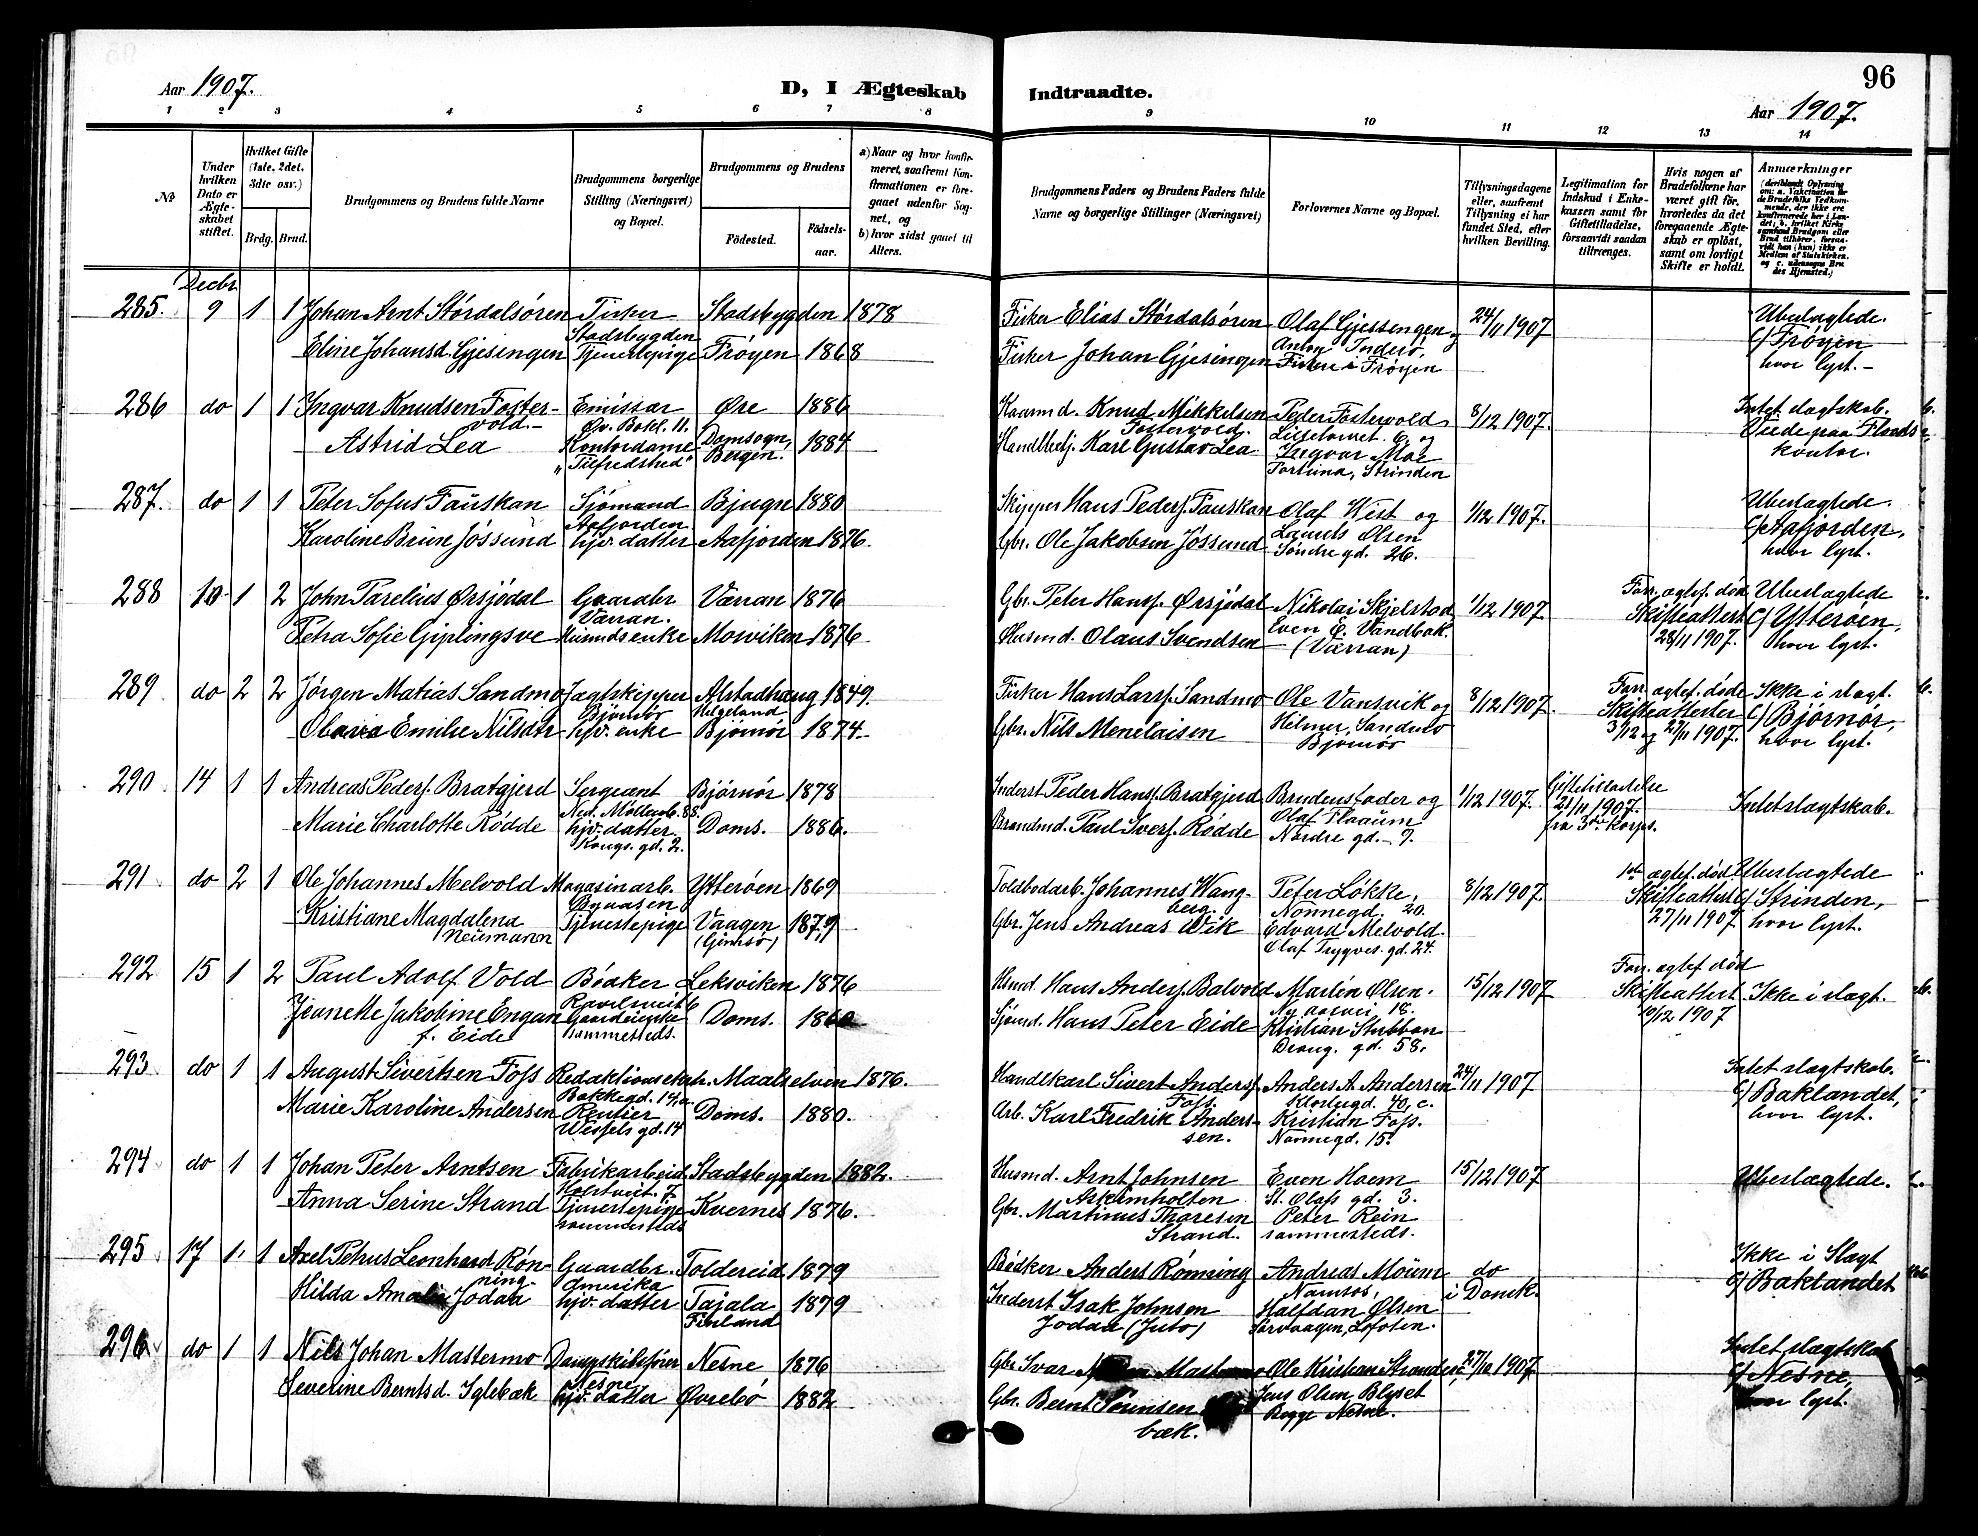 96
Aar 1907. D, I Ægteskab Indtraadte. Aar 1907.
1 2 3 4 5 6 7 8 9 10 11 12 13 14
No
Under hvilken Dato er Ægteskabet stiftet.
Hvilket Gifte (1ste, 2det, 3die osv.)
Brdg. Brud.
Brudgommens og Brudens fulde Navne
Brudgommens borgerlige Stilling (Næringsvei) og Bopæl.
Brudgommens og Brudens
Fødested. Fødselsaar.
a) Naar og hvor konfirmeret, saafremt Konfirmationen er foregaaet udenfor Sognet, og
b) hvor sidst gaaet til Alters.
Brudgommens Faders og Brudens Faders fulde Navne og borgerlige Stillinger (Næringsvei)
Forlovernes Navne og Bopæl.
Tillysningsdagene eller, saafremt Tillysning ei har fundet Sted, efter hvilken Bevilling.
Legitimation for Indskud i Enkekassen samt for Giftetilladelse, forsaavidt saadan tiltrænges.
Hvis nogen af Brudefolkene har været gift før, hvorledes da det foregaaende Ægteskab er opløst, samt om lovligt Skifte er holdt.
Anmærkninger
Decbr.
285. 9 1 1 Johan Arnt Størdalsøren Fisker Stadsbygden 1878 Fisker Elias Størdalsøren Olaf Gjessingen og 24/11 1907 Ubeslægtede.
Stadsbygden Anton Inderø, c/ Frøyen
Eline Johansd. Gjesingen Tjenestepige Frøyen 1868 Fisker Johan Gjesingen Fiskere i Frøyen hvor lyst.-
286 do 1 1 Ingvar Knudsen Foster- Emissær Øre 1886 Kaarmd. Knud Mikkelsen Peder Fostervold 8/12 1907. Intet slægtskab.
vold.- Øv. Bakl. 11. Fostervold. Lilletorvet 6 og
Astrid Lea Kontordame Domsogn, 1884 Handlbetj. Karl Gustav Lea Ingvar Moe Viede paa
"Tilfredshed" Bergen. Fortuna, Strinden kontor.
287. do 1 1 Peter Sofus Fauskan Sjømand Bjugn 1880 Skipper Hans Peders. Fauskan Olaf West og 1/12 1907. Ubeslægtede.
Aafjorden Laurits Olsen c/ Aafjorden,
Karoline Brun Jøssund hjv. datter Aafjorden 1876. Gbr. Ole Jakobsen Jøssund Søndre gd. 26. hvor lyst.
288 10 1 2 John Parelius Ørsjødal Gaardbr. Værran 1876 Gbr. Peter Hanss. Ørsjødal Nikolai Skjelstad 1/12 1907. Forr. ægtef. død Ubeslægtede
Værran. Even E. Vandbak. Skifteattest c/ Ytterøen,
Petra Sofie Giplingsve Husmds enke Mosviken 1876 Husmd. Olaus Svendsen (Værran) 28/11 1907. hvor lyst.
289 do 2 2 Jørgen Matias Sandmo Jagtskipper Alstadhaug 1849. Fisker Hans Larss. Sandmo Ole Vansvik og 8/12 1907. Forr. ægtef. døde Ikke i slægt.
Bjørnør Helgeland Helmer Sandmo Skifteattester c/ Bjørnør,
Emilie Nilsdtr hjv. enke Bjørnør 1874. Gbr. Nils Menelaisen Bjørnør 3/12 og 27/11 1907. hvor lyst.
290 14 1 1 Andreas Peders. Bratgjerd Sergeant Bjørnør 1878 Inderst Peder Hans. Bratgjerd Brudens fader og 1/12 1907. Giftetilladelse Intet slægtskab.
Ned. Møllenb. 88. Olaf Flaaum 21/11 1907.
Marie Charlotte Rødde hjv. datter Doms. 1886. Brandmd. Paul Ivers. Rødde Nordre gd. 7. fra 3die korps.
Kongs. gd. 2.
291 do 2 1 Ole Johannes Melvold Magasinarb. Ytterøen 1869 Toldbodarb. Johannes Wang- Peter Løkke, 8/12 1907. 1ste ægtef. død Ubeslægtede
Byaasen berg. Nonnegd. 20. Skifteattest c/ Strinden,
Kristiane Magdalena Tjenestepige Vaagen 1879 Gbr. Jens Andreas Wik Edvard Melvold. 27/11 1907 hvor lyst.
Neumann (Gimsø) Olaf Trygves. gd. 24.
292 15 1 2 Paul Adolf Vold Bødker Leksviken 1876 Husmd. Hans Anders. Balvold Martin Olsen. 15/12 1907 Forr. ægtef. død
Jeanette Jakobine Engan Doms. 1860 Sjømd. Hans Peter Eide Kristian Stubban Skifteattest Ikke i slægt.
f. Eide sammesteds. Drong. gd. 58. 10/12 1907
293 do 1 1 August Sivertsen Foss Redaktionssekr. Maalselven 1876. Handlkarl Sivert Anders. Anders A. Andersen 24/11 1907 Intet slægtskab.
Bakkegd. 14a. Foss. Klostergd. 40, c. c/ Baklandet,
Marie Karoline Andersen Rentier Doms. 1880. Arb. Karl Fredrik Anders- Kristian Foss. hvor lyst.
Wessels gd. 14 sen. Nonnegd. 15.
294 do 1 1 Johan Peter Arntsen Fabrikarbeid. Stadsbygden 1882. Husmd. Arnt Johnsen Even Hoem 15/12 1907 Ubeslægtede.
Askelmholten St. Olafs gd. 3.
Anna Serine Strand Tjenestepige Kvernes 1876. Gbr. Martinus Thoresen Peter Rein
sammesteds Strand. sammesteds.
295 17 1 1 Axel Petrus Leonhard Røn- Gaardbr. Foldereid 1879 Bødker Anders Rønning Andreas Moum do Ikke i Slægt
ning. Amerika Namsos, i Domk. c/ Baklandet
Hilda Amalia Jodaa hjv. datter Tajala 1879 Inderst Isak Johnsen Halfdan Olsen
Finland Jodaa (Juto) Sørvaagen, Lofoten.
296 do 1 1 Nils Johan Mastermo Dampskibsfører Nesne 1876 Gbr. Ivar Ole Kristian Strand 27/10 1907. Intet slægtskab
Nesne Jens Olsen Blyset c/ Nesne,
Severine Berntsd. Iglebæk hjv. datter Øvrebø 1882 Gbr. Bernt Sørensen Begge Nesne. hvor lyst.
bæk.